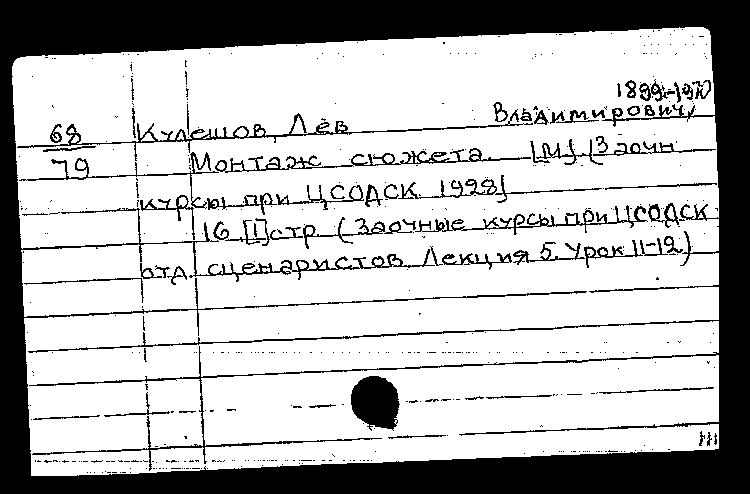 1899-1970
68 Кулешов, Лев Владимирович,
79 Монтаж сюжета. [М], [Заочн
курсы при ЦСОДСК 1928]
16 [I] стр (Заочные курсы при ЦСОДСК
отд. сценаристов. Лекция 5. Урок 11-12)